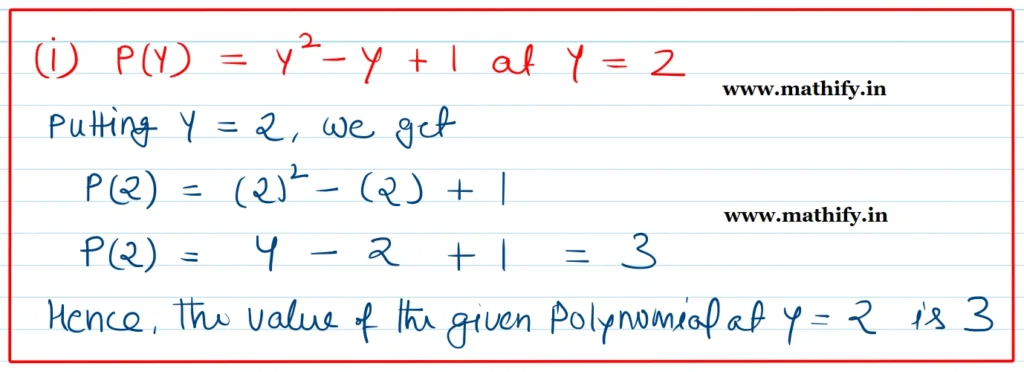 (i) P(Y) = Y² - Y + 1 at Y = 2
www.mathify.in
Putting Y = 2, we get
P(2) = (2)² - (2) + 1
www.mathify.in
P(2) = 4 - 2 + 1 = 3
Hence, the value of the given Polynomial at Y = 2 is 3